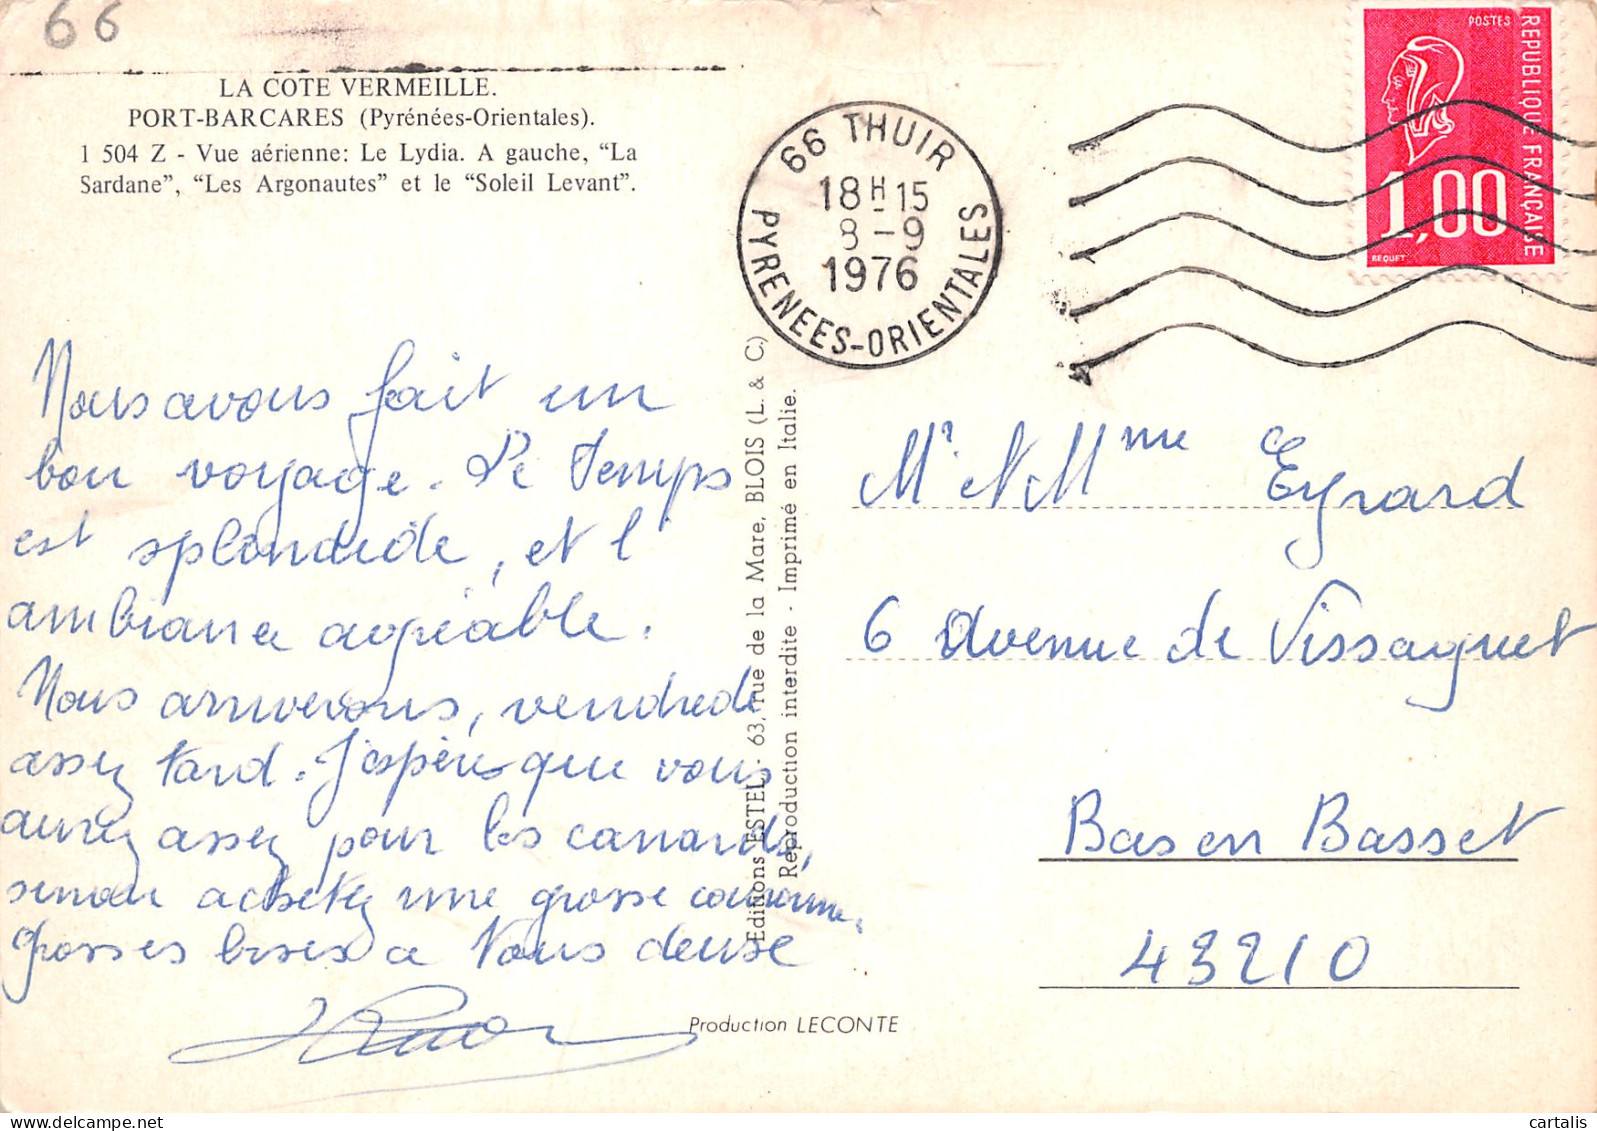 66
LA COTE VERMEILLE.
PORT-BARCARES (Pyrénées-Orientales).
1 504 Z - Vue aérienne: Le Lydia. A gauche, “La
Sardane”, “Les Argonautes” et le “Soleil Levant”.
Nous avons fait un
bon voyage. Le Temps
est splendide, et l'
ambiance agréable.
Nous arriverons, vendredi
assez tard. J'espère que vous
aurez assez pour les canards,
sinon achetez une grosse couronne.
Grosses bises a Vous deuse
Editions ESTEL - 63, rue de la Mare, BLOIS (L. & C)
Reproduction interdite - Imprimé en Italie.
Production LECONTE
66 THUIR
18H15
8-9
1976
PYRENEES-ORIENTALES
POSTES
REPUBLIQUE FRANÇAISE
1,00
BEQUET
Mr et Mme Eyrard
6 Avenue de Vissaguet
Bas en Basset
43210
cartalis